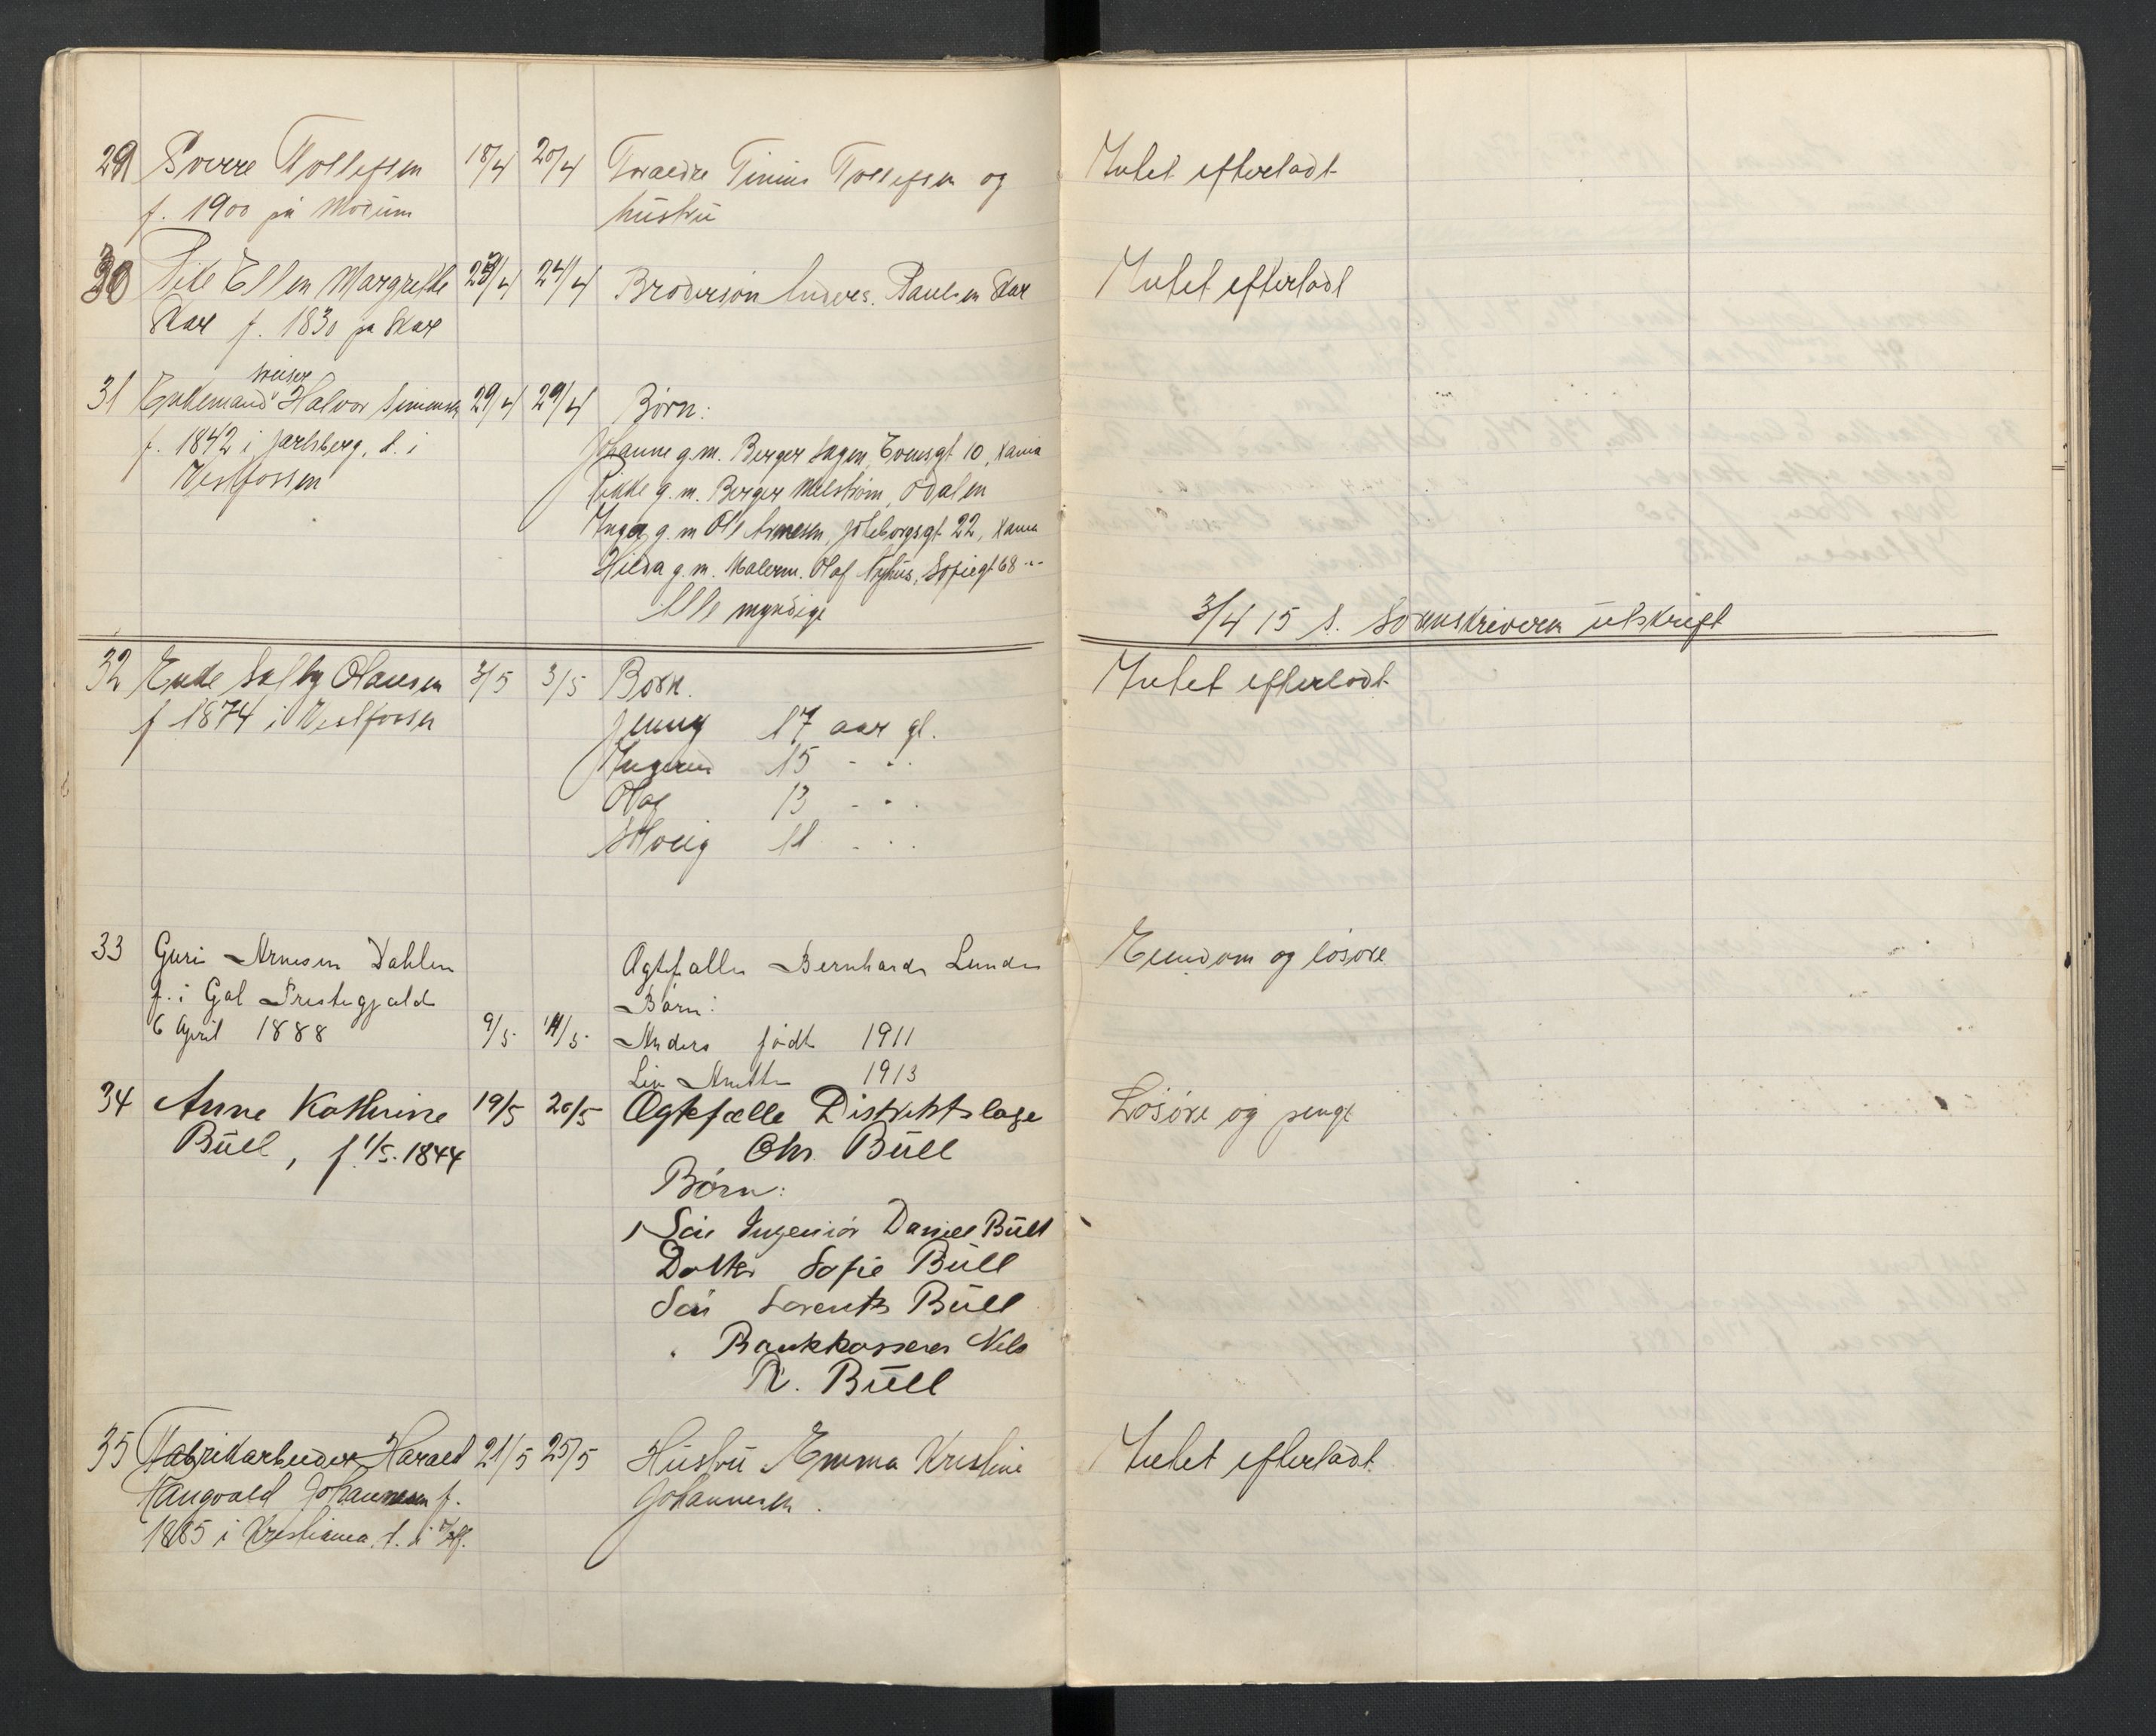 29 Sverre Tollefsen 18/4 20/4 Foraedre Tinius Tollefsen og Intet efterladt
f. 1900 på Modum hustru
30 Pike Ellen Margrethe 23/4 24/4 Brodersön Anders Paulsen Skar Intet efterladt
Skar f. 1830 pa Skar
31 Enkemand sveiser Halvor Simensen 29/4 29/4 Börn:
f. 1842 i Jarlsberg, d. i Johanne g.m. Berger Hagen, 10, Kania
Vestfossen Rikke g.m. Berger Melström, Odalen
Inga g.m Ole Arnesen, Göteborgsgt 22, Kania
Hilda g.m. Malerm. Olaf Nyhus, Sofiegt 68 -"-
Alle myndige
3/4 15 s. Sorenskriveren utskrift
32 Enke Olausen 3/5 3/5 Börn. Intet efterladt
f 1874 i Vestfossen Jenny 17 aar gl.
Ingerid 15 - "
Olaf 13 - "
Solveig 11 - "
33 Guri Arnesen Dahlen Ægtefælle Bernhard Lunde Eiendom og lösöre
f. i Gol Prestegjæld Börn:
6 April 1888 9/5. 14/5. Anders födt 1911
Liv 1913
34 Anne Kathrine 19/5 20/5 Ægtefælle Distriktslæge Lösöre og penge
Büll, f. 1/5. 1844 Chr. Büll
Börn:
Sön Ingeniör Daniel Büll
Datter Sofie Büll
Sön Lorentz Büll
" Bankkasserer Nils
R. Büll
35 Fabrikarbeider Harald 21/5 25/5 Hustru Emma Kristine Intet efterladt
Tangvald Johannesen f. Johannesen.
1885 i Kristiania, d. i